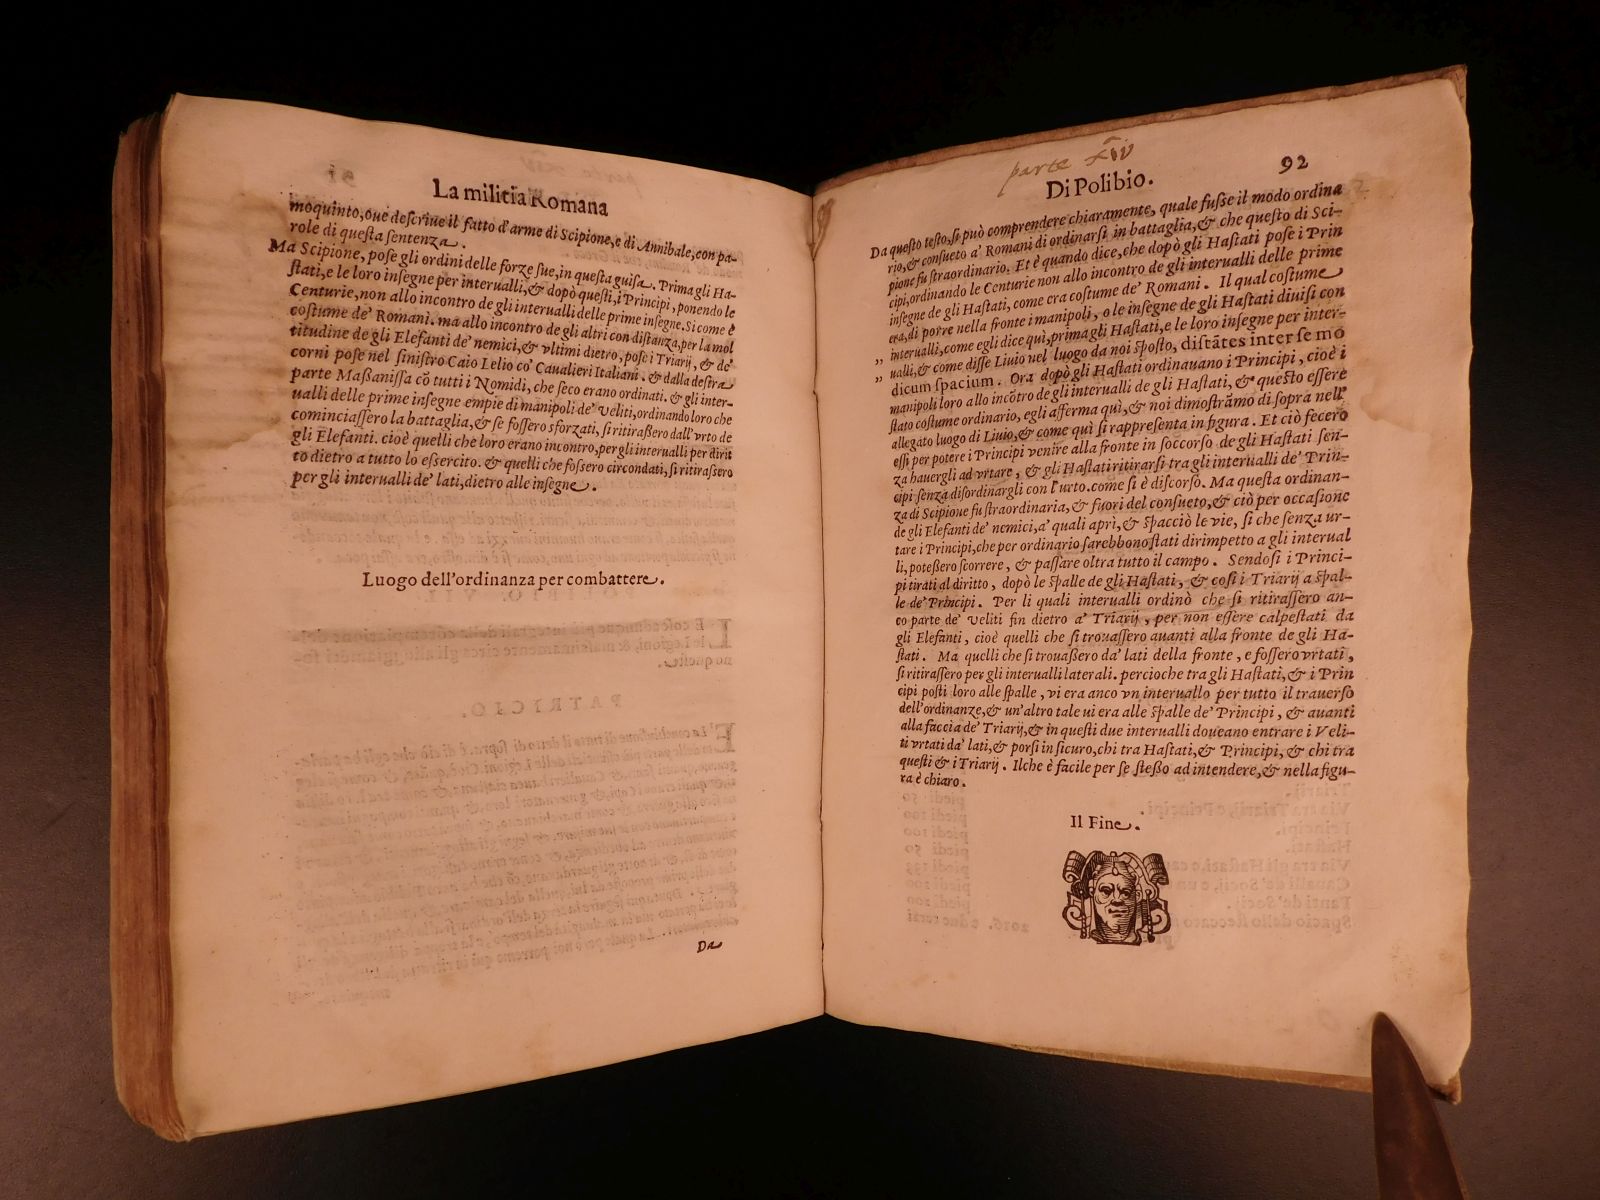 La militia Romana
moquinto, oue descriue il fatto d'arme di Scipione, e di Annibale, con pa-
role di questa sentenza.
Ma Scipione, pose gli ordini delle forze sue, in questa guisa. Prima gli Ha-
stati, e le loro insegne per interualli, & dopò questi, i Principi, ponendo le
Centurie, non allo incontro de gli interualli delle prime insegne. Si come è
costume de' Romani. ma allo incontro de gli altri con distanza, per la mol
titudine de gli Elefanti de' nemici, & vltimi dietro, pose i Triarij, & de'
corni pose nel sinistro Caio Lelio co' Caualieri Italiani. & dalla destra
parte Massanissa cõ tutti i Nomidi, che seco erano ordinati. & gli inter-
ualli delle prime insegne empie di manipoli de' Veliti, ordinando loro che
cominciassero la battaglia, & se fossero sforzati, si ritirassero dall'vrto de
gli Elefanti. cioè quelli che loro erano incontro, per gli interualli per dirit
to dietro a tutto lo essercito. & quelli che fossero circondati, si ritirassero
per gli interualli de' lati, dietro alle insegne.
Luogo dell'ordinanza per combattere.
Da
parte XIV
92
Di Polibio.
Da questo testo, si può comprendere chiaramente, quale fusse il modo ordina
rio, & consueto a' Romani di ordinarsi in battaglia, & che questo di Sci-
pione fu straordinario. Et è quando dice, che dopò gli Hastati pose i Prin
cipi, ordinando le Centurie non allo incontro de gli interualli delle prime
insegne de gli Hastati, come era costume de' Romani. Il qual costume
era, di porre nella fronte i manipoli, o le insegne de gli Hastati diuisi con
interualli, come egli dice quì, prima gli Hastati, e le loro insegne per inter-
,, ualli, & come disse Liuio nel luogo da noi sposto, distãtes inter se mo
,, dicum spacium. Ora dopò gli Hastati ordinauano i Principi, cioè i
manipoli loro allo incõtro de gli interualli de gli Hastati, & questo essere
stato costume ordinario, egli afferma quì, & noi dimostrãmo di sopra nell'
allegato luogo di Liuio, & come quì si rappresenta in figura. Et ciò fecero
essi per potere i Principi venire alla fronte in soccorso de gli Hastati sen-
za hauergli ad vrtare, & gli Hastati ritirarsi tra gli interualli de' Prin-
cipi senza disordinargli con l'urto. come si è discorso. Ma questa ordinan-
za di Scipione fu straordinaria, & fuori del consueto, & ciò per occasione
de gli Elefanti de' nemici, a' quali aprì, & spacciò le vie, si che senza ur-
tare i Principi, che per ordinario sarebbono stati dirimpetto a gli interual
li, potessero scorrere, & passare oltra tutto il campo. Sendosi i Princi-
pi tirati al diritto, dopò le spalle de gli Hastati, & così i Triarij a spal-
le de' Principi. Per li quali interualli ordinò che si ritirassero an-
co parte de' Veliti fin dietro a' Triarij, per non essere calpestati da
gli Elefanti, cioè quelli che si trouassero auanti alla fronte de gli Ha-
stati. Ma quelli che si trouassero da' lati della fronte, e fossero vrtati,
si ritirassero per gli interualli laterali. percioche tra gli Hastati, & i Prin
cipi posti loro alle spalle, vi era anco vn interuallo per tutto il trauerso
dell'ordinanze, & un'altro tale ui era alle spalle de' Principi, & auanti
alla faccia de' Triarij, & in questi due interualli doueano entrare i Veli-
ti vrtati da' lati, & porsi in sicuro, chi tra Hastati, & Principi, & chi tra
questi & i Triarij. Ilche è facile per se stesso ad intendere, & nella figu-
ra è chiaro.
Il Fine.